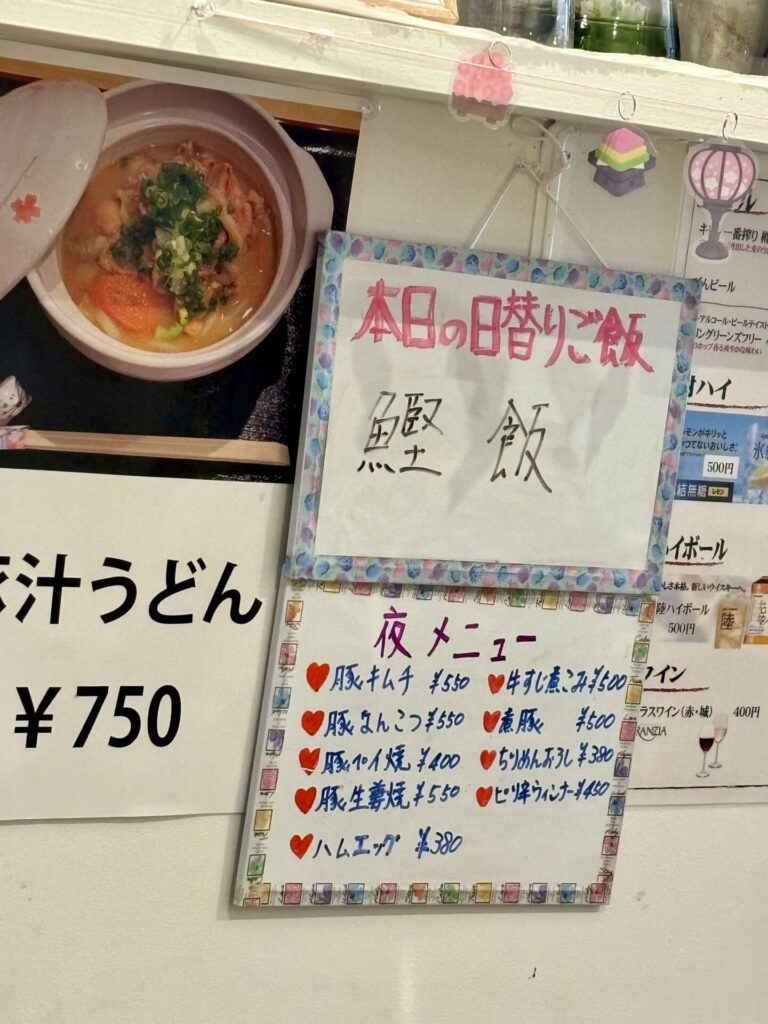 汁うどん
¥750
本日の日替りご飯
鰹 飯
夜メニュー
豚キムチ ¥550
豚なんこつ ¥550
豚ペイ焼 ¥400
豚生姜焼 ¥550
ハムエッグ ¥380
牛すじ煮こみ ¥500
煮豚 ¥500
ちりめんおろし ¥380
ピリ辛ウィンナー ¥450
一番搾り
んビール
アルコール・ビールテイスト
リングリーンズフリー
ハイ
モンがキリッと
つてないおいしさ。
500円
結無糖 レモン
イボール
さ本格。新しいウイスキーへ
陸ハイボール
500円
陸
イン
ラスワイン(赤・城) 400円
RANZIA